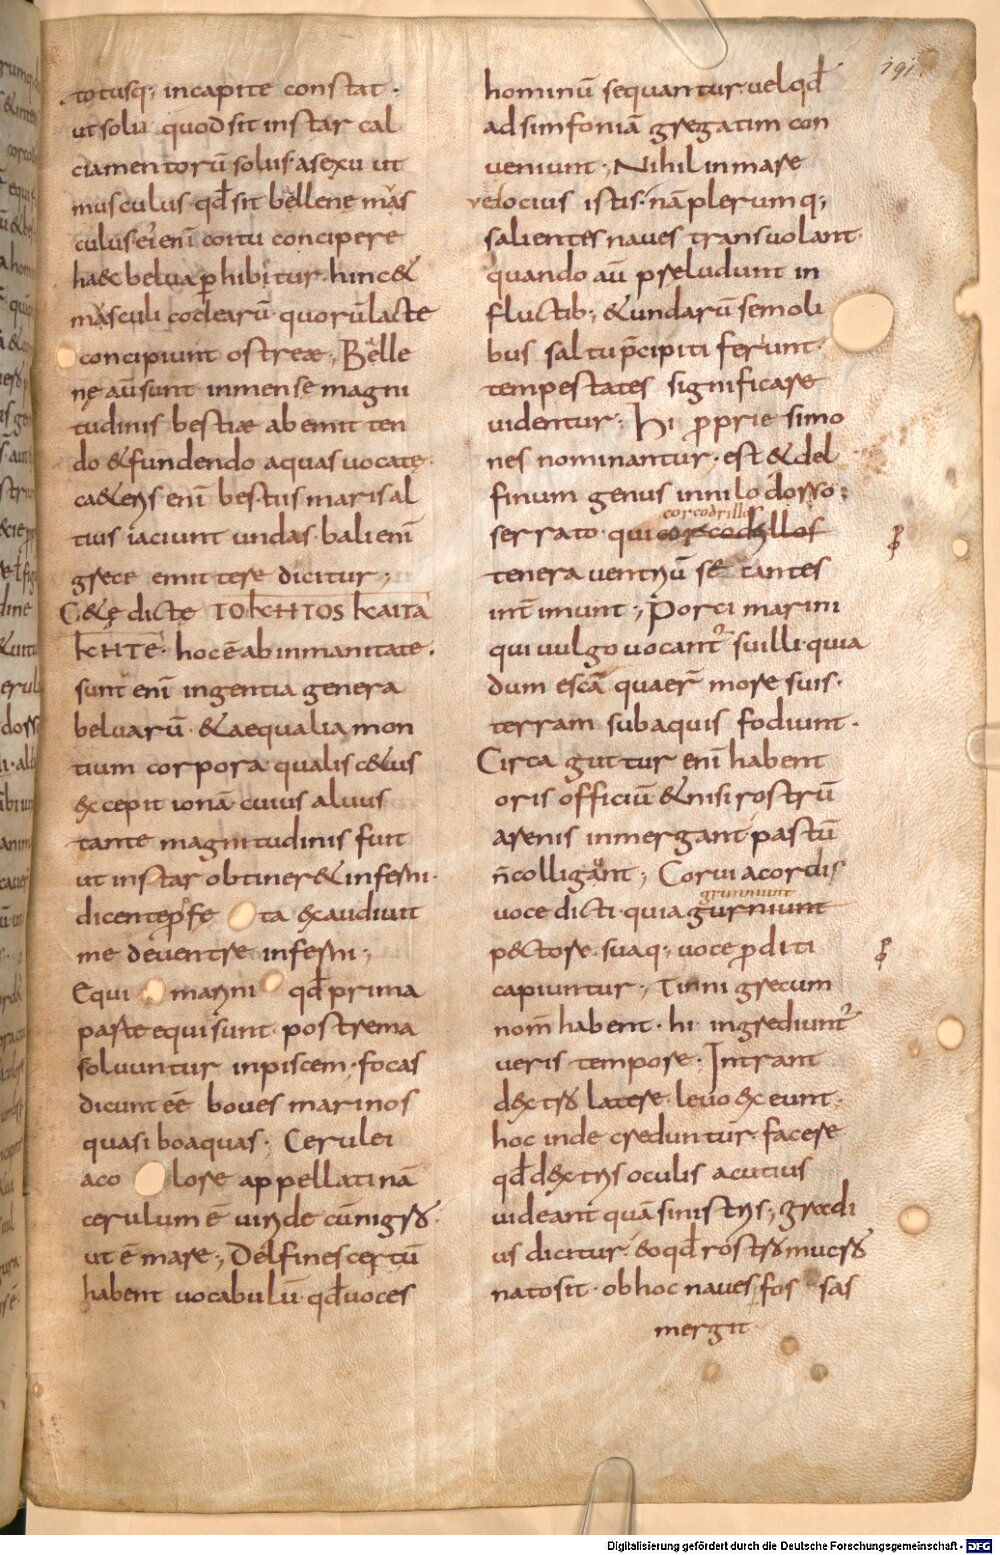 191
totusq; incapite constat.
ut solu quod sit instar cal
ciamentorū solus asexu ut
musculus qđ sit bellene mas
culus ei enī coitu concipere
haec belua phibitur. hinc &
masculi coclearū quorū lacte
concipiunt ostreae; Belle
nę aū sunt inmense magni
tudinis bestiae ab emit ten
do & fundendo aquas uocate.
ca&eris enī bestiis maris al
tius iaciunt undas. bali enī
grece emittere dicitur;
C&ę dicte ΤΟΚΗΤΟS ΚΑΙΤΑ
ΚΗΤΕ. hoc ē ab inmanitate.
sunt enī ingentia genera
beluarū & aequalia mon
tium corpora qualis c&us
excepit ionā cuius aluus
tante magnitudinis fuit
ut instar obtiner& inferni.
dicente pfe ta exaudiuit
me deuentre inferni;
Equi marini qđ prima
parte equi sunt postrema
soluuntur in piscem. focas
dicunt eē boues marinos
quasi boaquas; Cerulei
aco lore appellati nā
cerulum ē uiride cū nigro.
ut ē mare; Delfines certū
habent uocabulū. qđ uoces
hominū sequantur. uel qđ
ad simfoniā gregatim con
ueniunt; Nihil in mare
velocius istis. nā plerumq;
salientes naues transuolant.
quando aū preludunt in
fluctib; & undarū se moli
bus saltu p̄cipiti ferunt.
tempestates significare
uidentur; Hi pprie simo
nes nominantur. est & del
finum genus in nilo dorso;
corcodrillos
serrato. qui corcodyllos
tenera uentriū secantes
interimunt; Porci marini
qui uulgo uocantr̄ suilli. quia
dum escā quaer̄ more suis.
terram sub aquis fodiunt.
Circa guttur enī habent
oris officiū & nisi rostrū
arenis inmergant pastū
n̄ colligant; Corui acordis
grunniunt
uoce dicti. quia gurniunt
pectore. suaq; uoce pditi
capiuntur; Tinni grecum
nom̄ habent. hi ingrediuntr̄
ueris tempore. Intrant
dextro latere. leuo exeunt.
hoc inde creduntur. facere
qđ dextris oculis acutius
uideant quā sinistris; gladi
us dicitur. eo qđ rostro mucro
nato sit. ob hoc naues fos sas
mergit
Digitalisierung gefördert durch die Deutsche Forschungsgemeinschaft - DFG